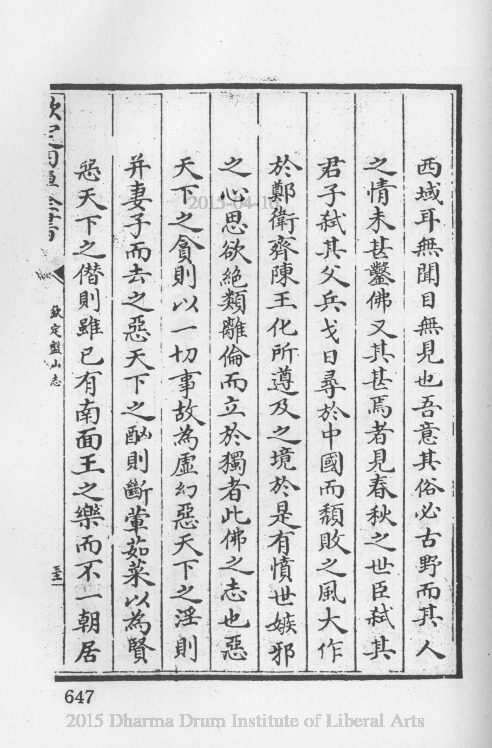 西域耳無聞目無見也吾意其俗必古野而其人
之情未甚鑿佛又其甚焉者見春秋之世臣弑其
君子弑其父兵戈日尋於中國而頹敗之風大作
於鄭衛齊陳王化所遵及之境於是有憤世嫉邪
之心思欲絶類離倫而立於獨者此佛之志也惡
天下之貪則以一切事故為虛幻惡天下之淫則
并妻子而去之惡天下之酗則斷葷茹菜以為賢
惡天下之僭則雖已有南面王之樂而不一朝居
欽定四庫全書
欽定盤山志
647
2015-04-10
2015 Dharma Drum Institute of Liberal Arts